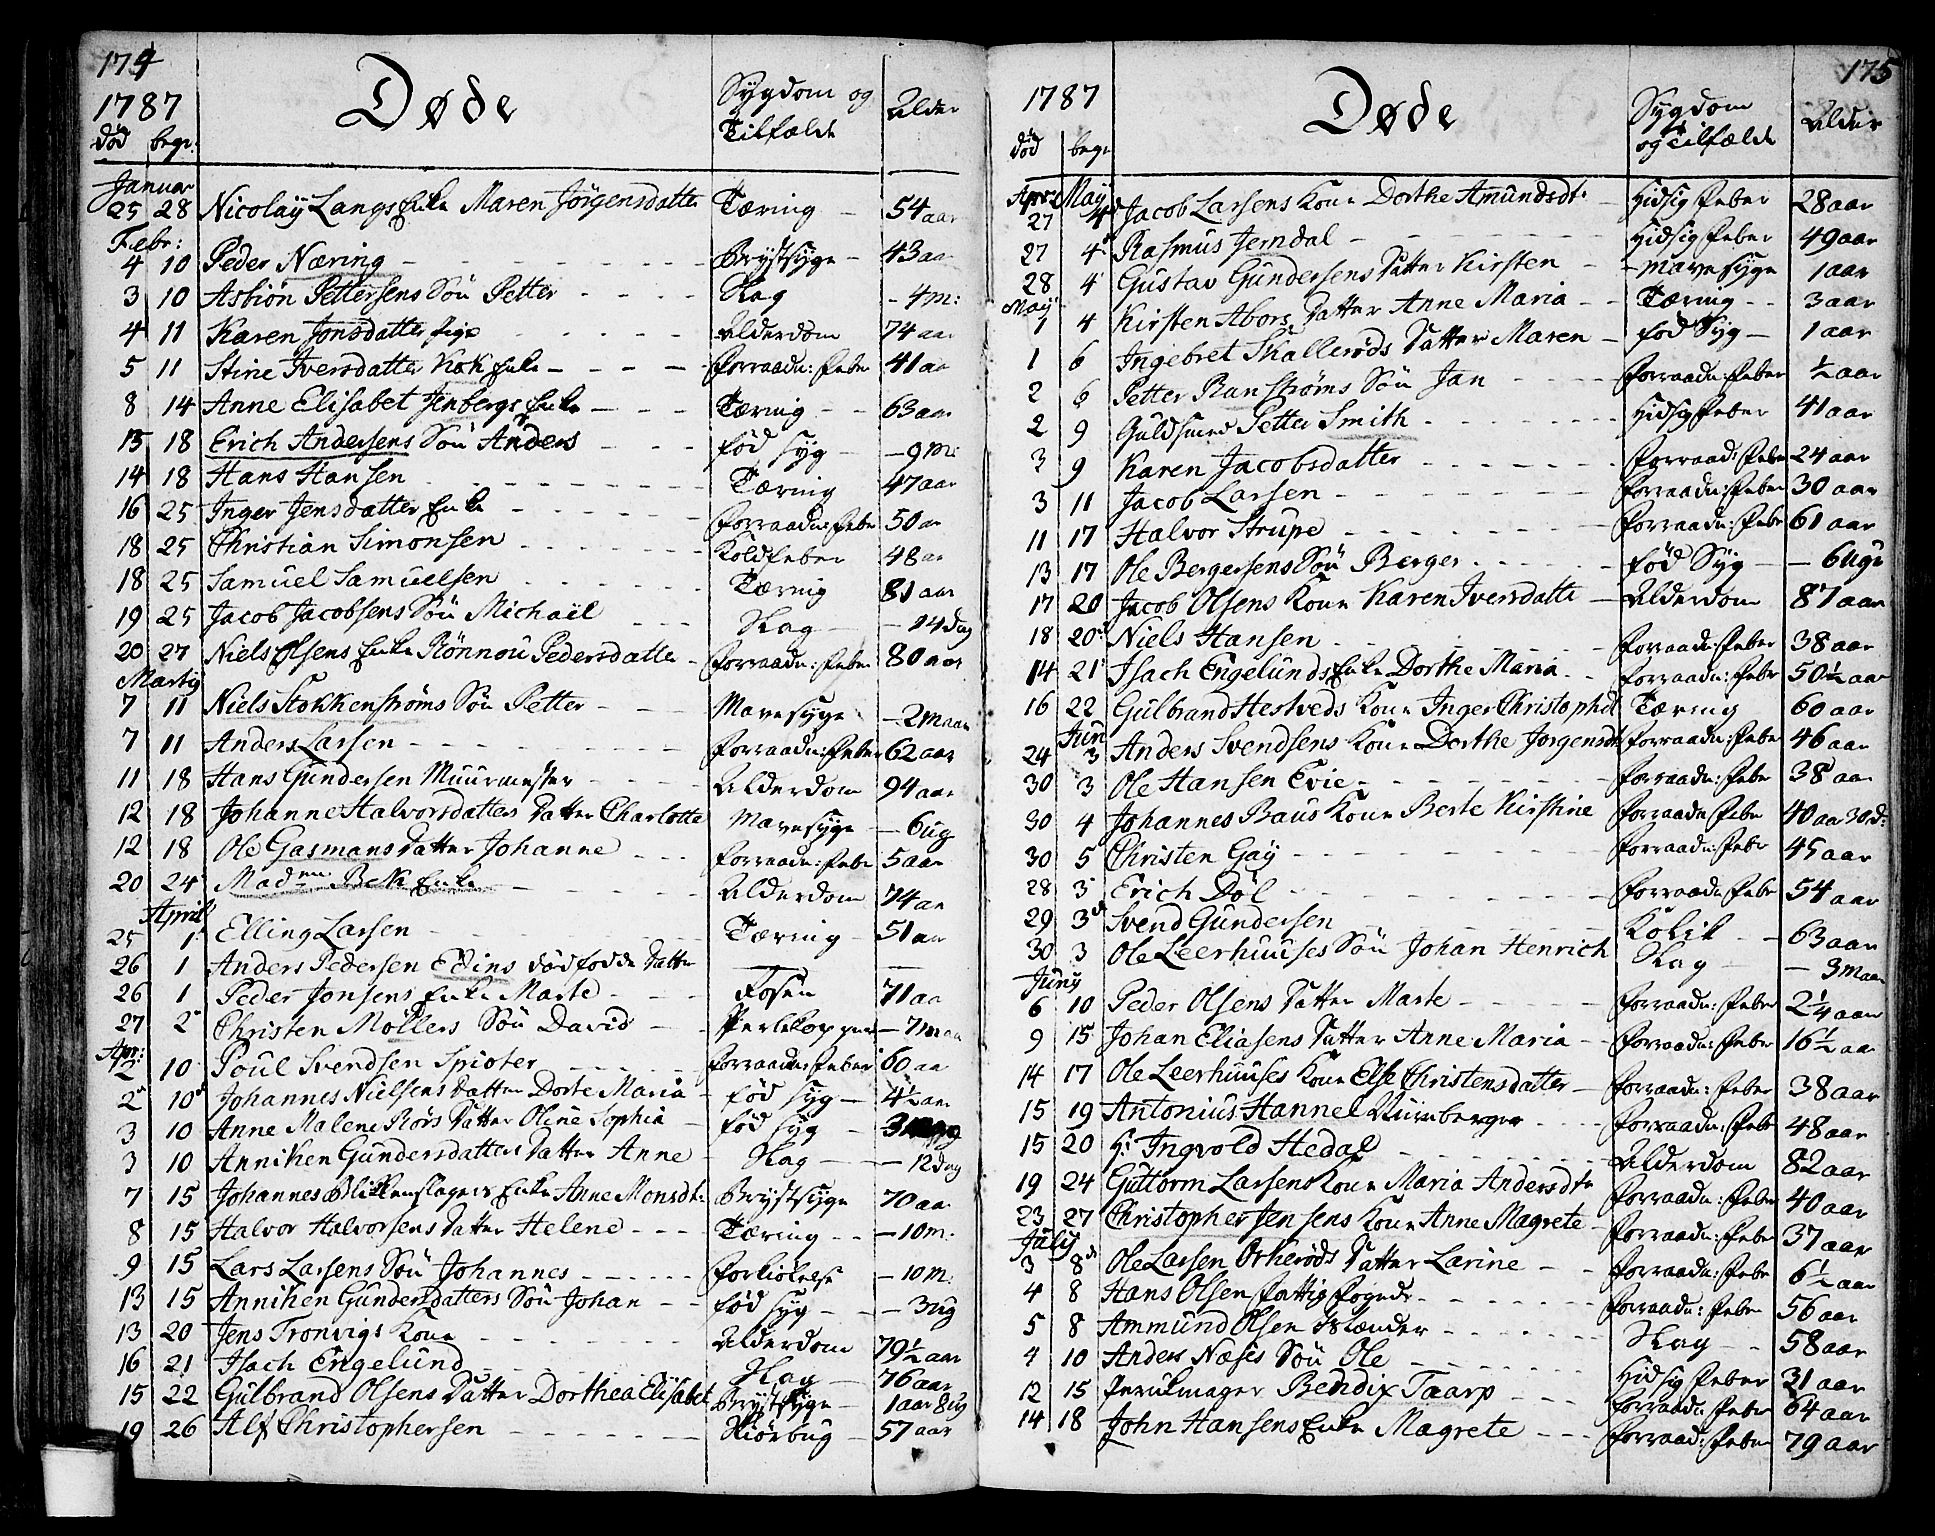 174
1787
Døde
Sygdom og
Tilfælde
Alder
død begr:
Januar
25 28 Nicolaÿ Langs Enke Maren Jörgensdatte Tæring 54 aar
Febr:
4 10 Peder Næring Brystsyge 43 aar
3 10 Asbiön Pettersens Sön Petter Slag 4 m:
4 11 Karen Jonsdatter Pige Alderdom 74 aar
5 11 Stine Iversdatter Kok Enke Forraadn: Feber 41 aar
8 14 Anne Elisabet Jenbergs Enke Tæring 63 aar
13 18 Erich Andersens Sön Anders fød syg 9 m:
14 18 Hans Hansen Tæring 47 aar
16 25 Inger Jensdatter Enke Forraadn: Feber 50 aar
18 25 Christian Simonsen Koldfeber 48 aar
18 25 Samuel Samuelsen Tæring 81 aar
19 25 Jacob Jacobsens Sön Michaël Slag 14 dag
20 27 Niels Olsens Enke Rönnou Pedersdatte Forraadn: Feber 80 aar
Martij
7 11 Niels Stokkenstrøms Sön Petter Mavesyge 2 maan
7 11 Anders Larsen Forraadn: Feber 62 aar
11 18 Hans Gundersen Muurmester Alderdom 94 aar
12 18 Johanne Halvorsdatters Datter Charlotte Mavesyge 6 ug
12 18 Ole Gasmans Datter Johanne Forraadn: Feber 5 aar
20 24 Maden Bek Enke Alderdom 74 aar
April
25 1 Elling Larsen Tæring 51 aar
26 1 Anders Pedersen Edins dødfødde Datter
26 1 Peder Jonsens Enke Marte Rosen 71 aar
27 2 Christen Möllers Sön David Perlekopper 7 maan
Apr:
2 10 Poul Svendsen Spioter Forraadn: Feber 60 aar
2 10 Johannes Nielsens Datter Dorte Maria fød syg 4½ aar
3 10 Anne Malene Rörs Datter Oline Sophia fød syg 3
3 10 Anniken Gundersdatters Datter Anne Slag 12 dag
7 15 Johannes Blikkenslagers Enke Anne Monsdt: Brystsyge 70 aar
8 15 Halvor Halvorsens Datter Helene Tæring 10 m:
9 15 Lars Larsens Sön Johannes Forkiölelse 10 m:
13 15 Anniken Gundersdatters Sön Johan fød syg 3 ug
13 20 Jens Tronvigs Kone Alderdom 79½ aar
16 21 Isach Engelund Slag 76 aar
15 22 Gulbrand Olsens Datter Dorthea Elisabet Brystsyge 1 aar 8 ug
19 26 Alf Christophersen Skiörbug 57 aar
175
1787
Døde
Sygdom
og Tilfælde
Alder
død begr
April May
27 4 Jacob Larsens Kone Dorthe Amundsdt: Hidsig Feber 28 aar
27 4 Rasmus Jerndal Hidsig Feber 49 aar
28 4 Gustav Gundersens Datter Kirsten Mavesyge 1 aar
May
1 4 Kirsten Abors Datter Anne Maria Tæring 3 aar
1 6 Ingebret Skallerøds Datter Maren fød Syg 1 aar
2 6 Petter Ranströms Sön Jan Forraadn: Feber ½ aar
2 9 Guldsmed Petter Smith Hidsig Feber 41 aar
3 9 Karen Jacobsdatter Forraad: Feber 24 aar
3 11 Jacob Larsen Forraadn: Feber 30 aar
11 17 Halvor Strupe Forraadn: Feber 61 aar
13 17 Ole Bergersens Sön Berger fød Syg 6 uger
17 20 Jacob Olsens Kone Karen Iversdatte Alderdom 87 aar
18 20 Niels Hansen Forraadn: Feber 38 aar
14 21 Isach Engelunds Enke Dorthe Maria Forraadn: Feber 50½ aar
16 22 Gulbrand Hestveds Kone Inger Christophdt Tæring 60 aar
Jun
24 3 Anders Svendsens Kone Dorthe Jorgensdt Forraadn: Feber 46 aar
30 3 Ole Hansen Evie Forraadn: Feber 38 aar
30 4 Johannes Baus Kone Berte Kirstine Forraadn Feber 40 aar 30 d:
30 5 Christen Gaÿ Forraadn: Feber 45 aar
28 3 Erich Döl Forraadn Feber 54 aar
29 3 Svend Gundersen Kolik 63 aar
30 3 Ole Leerhuuses Sön Johan Henrich Slag 3 maan
Junij
6 10 Peder Olsens Datter Marte Forraadn: Feber 2¼ aar
9 15 Johan Eliasens Datter Anne Maria Forraadn: Feber 16½ aar
14 17 Ole Leerhuuses Kone Else Christensdatter Forraadn: Feber 38 aar
15 19 Antonius Hannel Nürnberger Forraadn: Feber 48 aar
15 20 Hr Ingvold Hedal Alderdom 82 aar
19 24 Guttorm Larsens Kone Maria Andersdtr Forraadn: Feber 40 aar
23 27 Christopher Jensens Kone Anne Magrete Forraadn: Feber 37 aar
Julij
3 8 Ole Larsen Orkerøds Datter Larine Forraadn: Feber 6½ aar
4 8 Hans Olsen Fattig Fogede Forraadn: Feber 56 aar
5 8 Ammund Olsen Islænder Slag 58 aar
4 10 Anders Næses Sön Ole Hidsig Feber 31 aar
12 15 Perukmager Bendix Taarp Forraadn Feber 64 aar
14 18 John Hansens Enke Magrete Forraad: Feber 79 aar